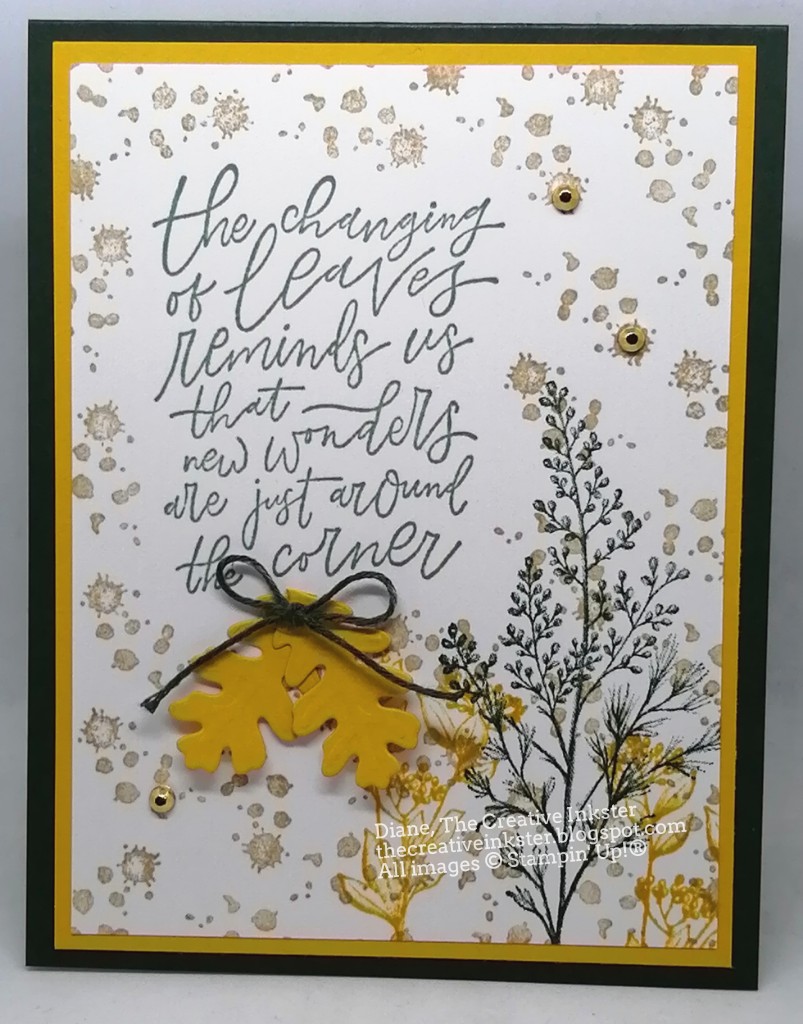 the changing
of leaves
reminds us
that wonders
new
are just around
the corner
Diane, The Creative Inkster
thecreativeinkster.blogspot.com
All images © Stampin' Up!®